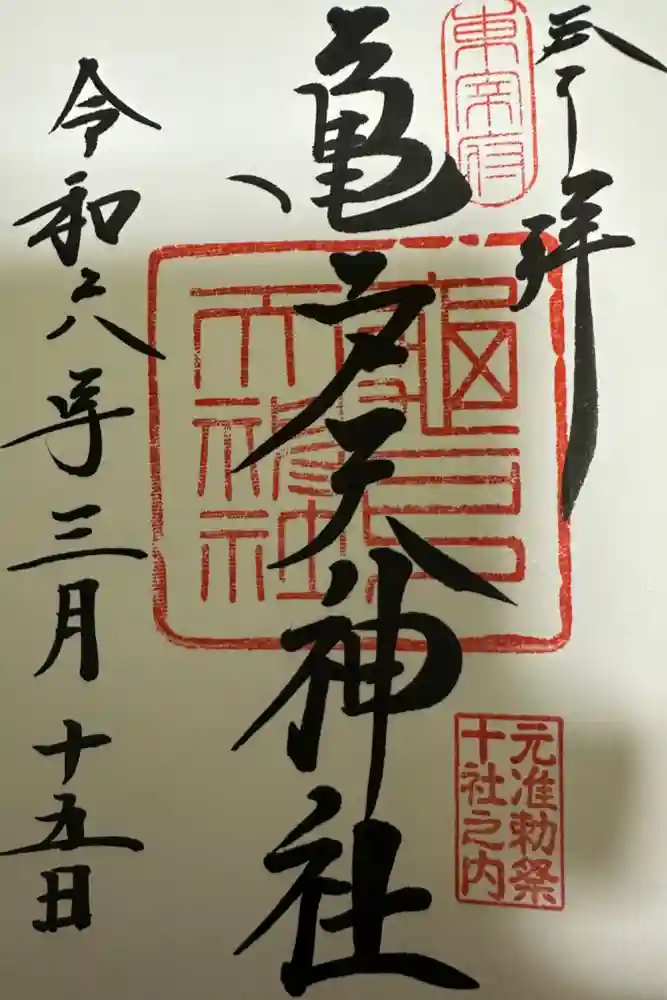 奉拝
東宰府
亀戸天神社
亀戸天神社
元准勅祭
十社之内
令和六年三月十五日